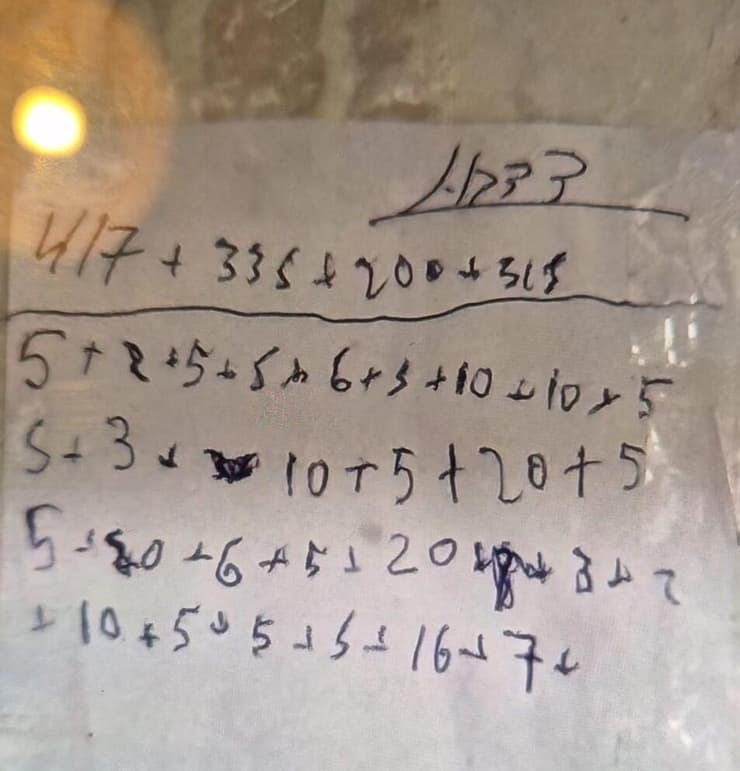 417 + 335 + 200 + 315
5 + 2 + 5 + 5 + 6 + 5 + 10 + 10 + 5
5 + 3 + 10 + 5 + 20 + 5
5 + 20 + 6 + 5 + 20 + 3 + 2
+ 10 + 5 + 5 + 5 + 16 + 7 +